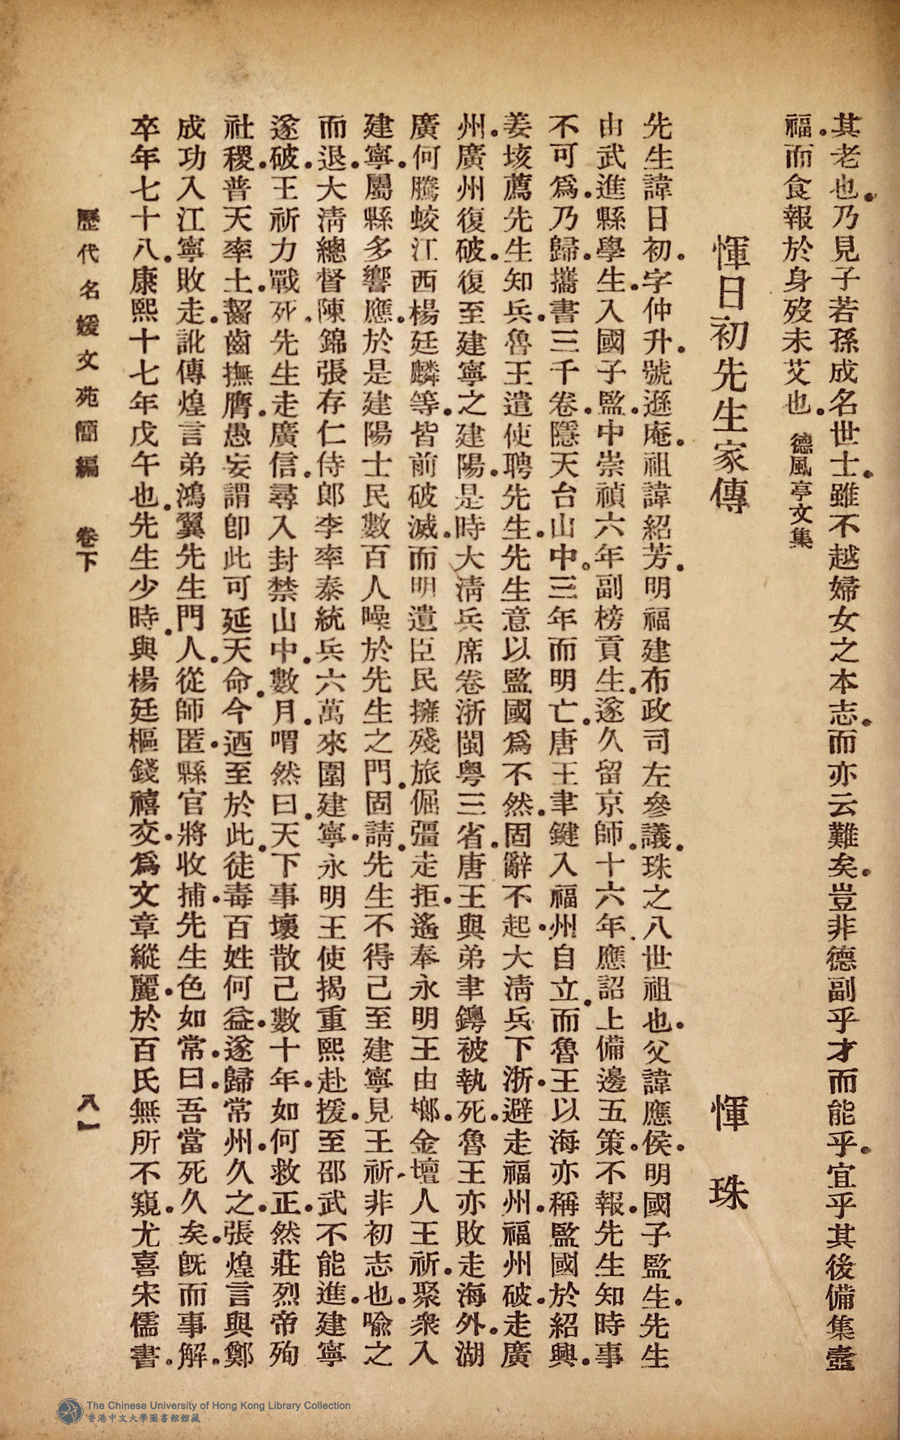 其老也。乃見子若孫成名世士。雖不越婦女之本志。而亦云難矣。豈非德副乎才而能乎。宜乎其後備集壼
福。而食報於身歿未艾也。德風亭文集
惲日初先生家傳 惲珠
先生諱日初。字仲升。號遜庵。祖諱紹芳。明福建布政司左參議。珠之八世祖也。父諱應侯。明國子監生。先生
由武進縣學生。入國子監。中崇禎六年副榜貢生。遂久留京師。十六年。應詔上備邊五策。不報。先生知時事
不可爲。乃歸。攜書三千卷。隱天台山中。三年而明亡。唐王聿鍵入福州自立。而魯王以海亦稱監國於紹興。
姜垓薦先生知兵。魯王遣使聘先生。先生意以監國爲不然。固辭不起。大淸兵下浙。避走福州。福州破。走廣
州。廣州復破。復至建寧之建陽。是時大淸兵席卷浙閩粵三省。唐王與弟聿鐭被執死。魯王亦敗走海外。湖
廣何騰蛟江西楊廷麟等。皆前破滅。而明遺臣民擁殘旅倔彊走拒。遙奉永明王由榔。金壇人王祈。聚衆入
建寧。屬縣多響應。於是建陽士民數百人噪於先生之門。固請。先生不得已至建寧。見王祈。非初志也。喩之
而退。大淸總督陳錦張存仁侍郎李率泰統兵六萬來圍建寧。永明王使揭重熙赴援。至邵武不能進。建寧
遂破。王祈力戰死。先生走廣信。尋入封禁山中。數月。喟然曰。天下事壞散已數十年。如何救正。然莊烈帝殉
社稷。普天率土。齧齒撫膺。愚妄謂卽此可延天命。今迺至於此。徒毒百姓何益。遂歸常州。久之。張煌言與鄭
成功入江寧敗走。訛傳煌言弟鴻翼先生門人。從師匿。縣官將收捕。先生色如常。曰。吾當死久矣。旣而事解。
卒年七十八。康熙十七年戊午也。先生少時。與楊廷樞錢禧交。爲文章縱麗。於百氏無所不窺。尤喜宋儒書。
歷代名媛文苑簡編 卷下 八一
The Chinese University of Hong Kong Library Collection
香港中文大學圖書館館藏